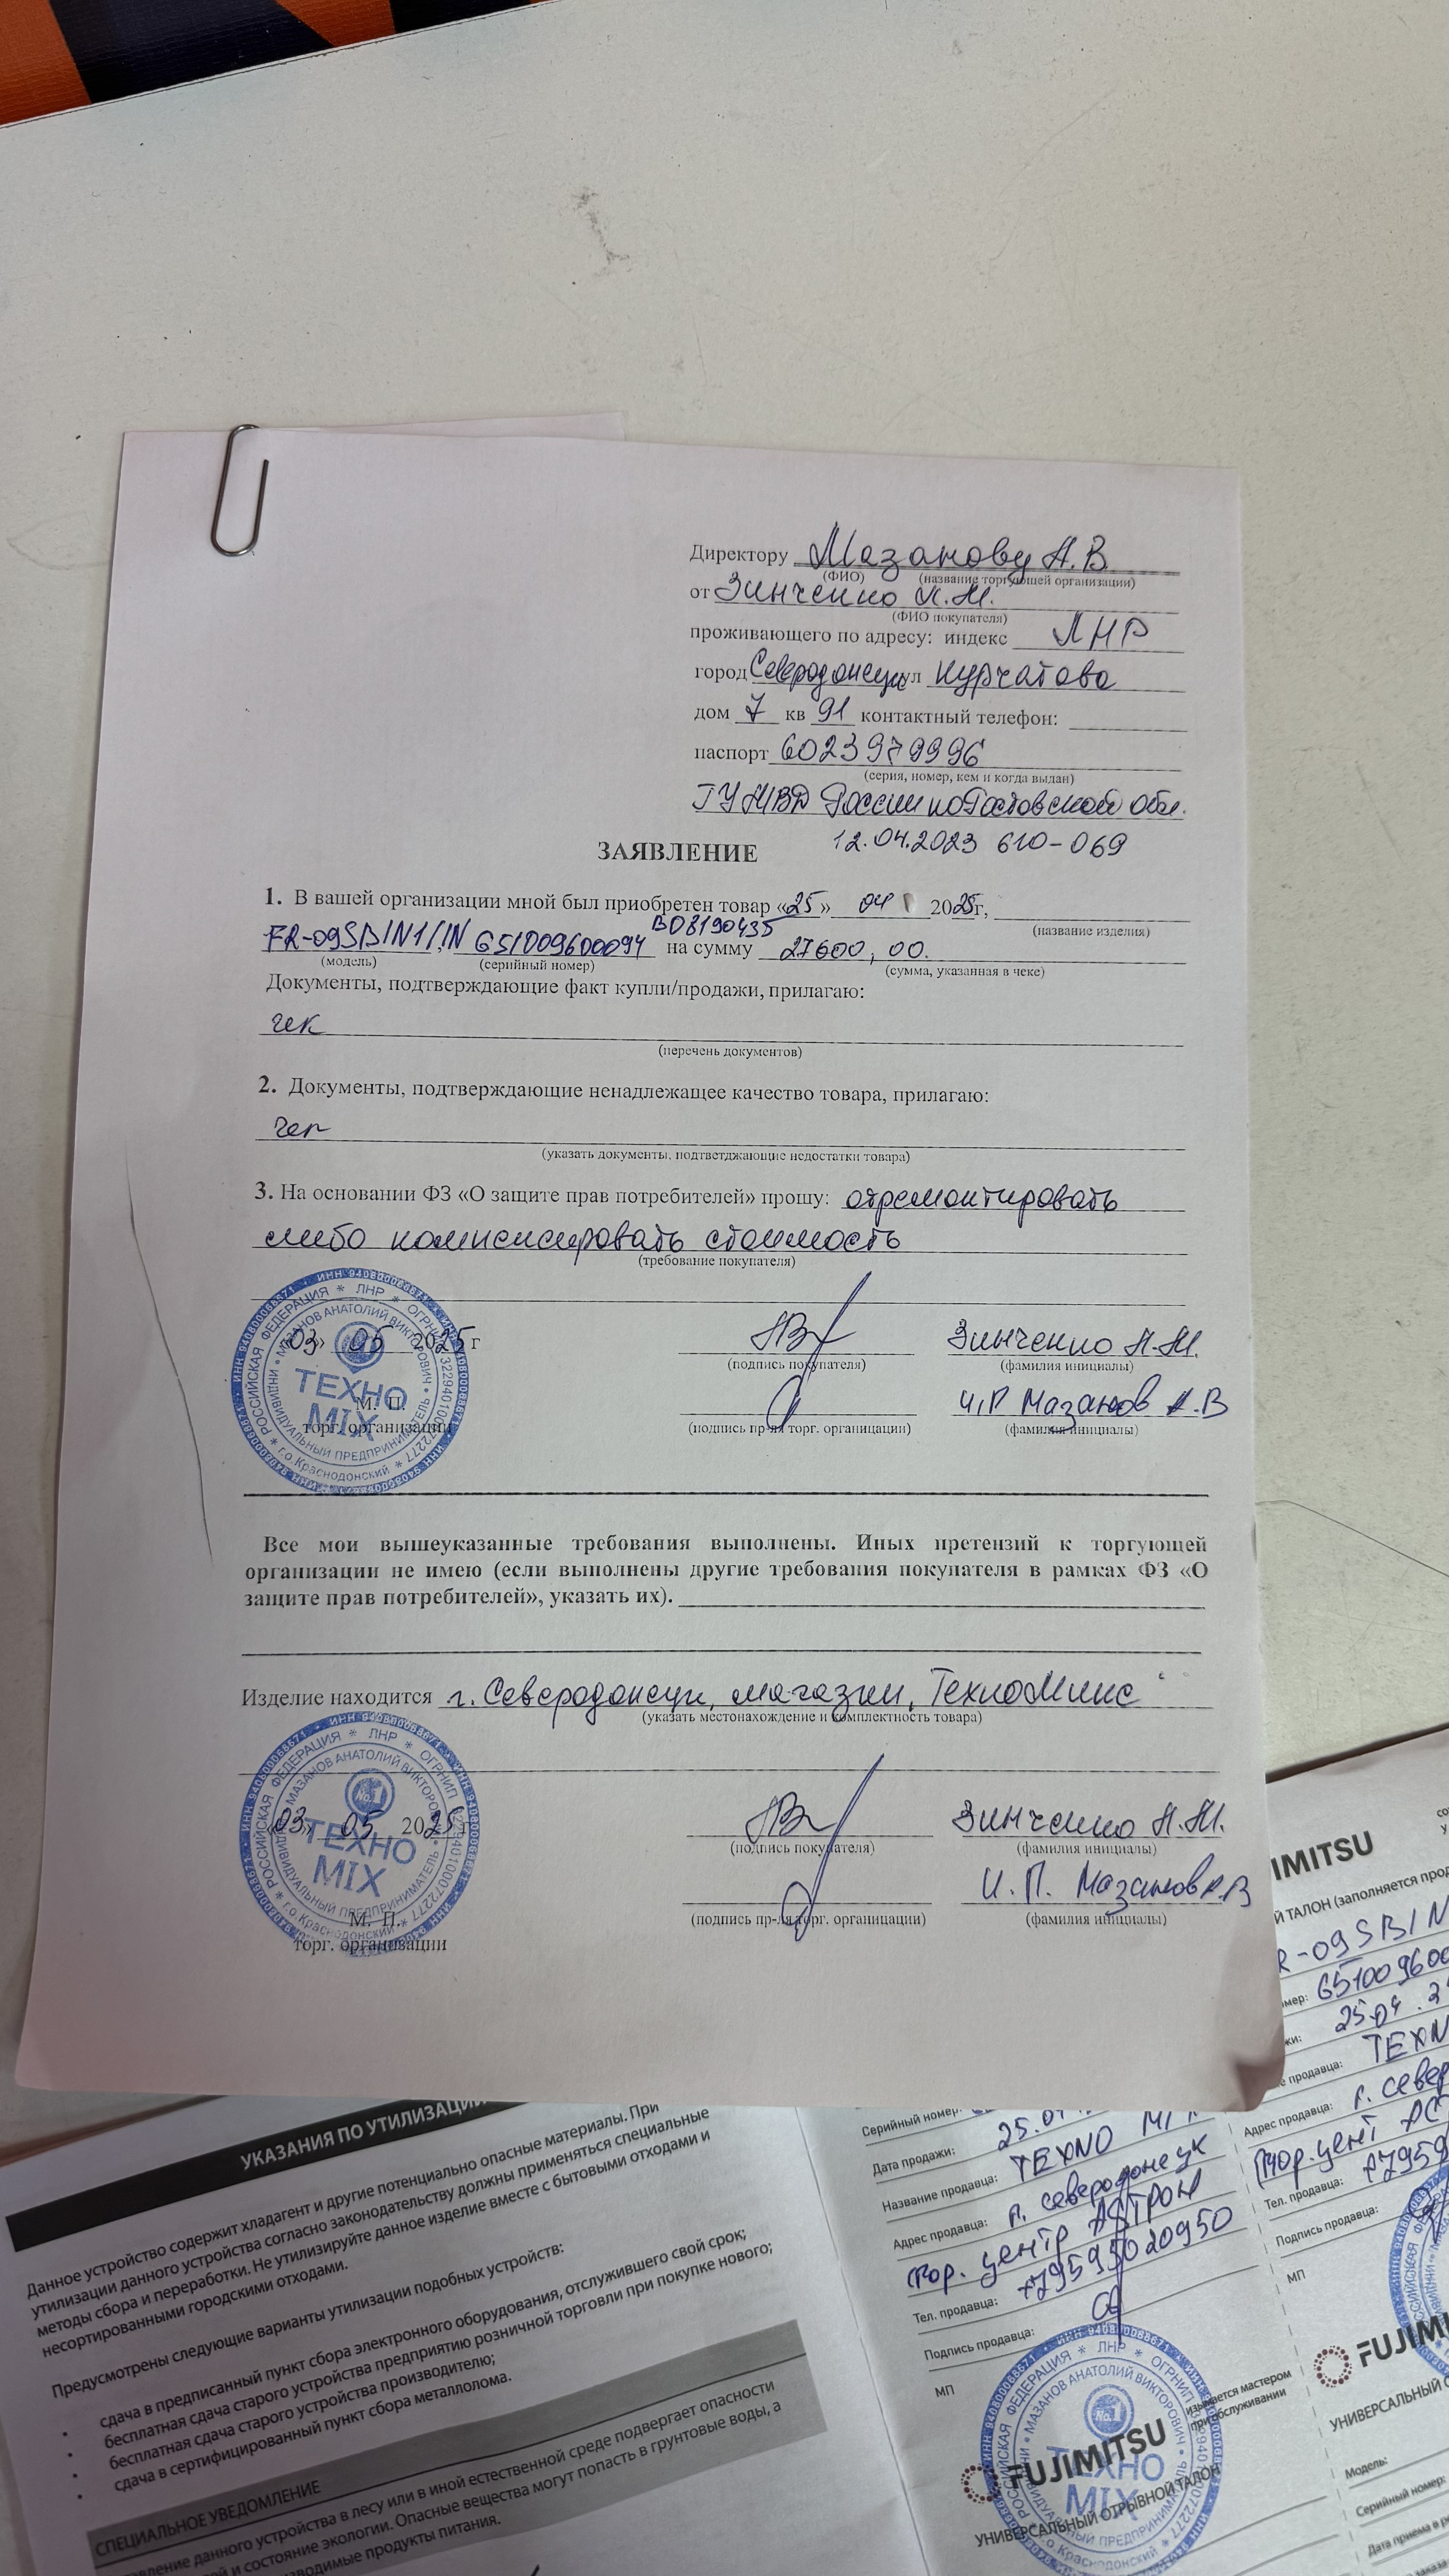 Директору Мазанову А.В
(ФИО) (название торгующей организации)
от Зинченко Н.М.
(ФИО покупателя)
проживающего по адресу: индекс ЛНР
город Северодонецк ул Курчатова
дом 7 кв 91 контактный телефон:
паспорт 6023979996
(серия, номер, кем и когда выдан)
ГУ МВД России по Ростовской обл.
12.04.2023 610-069
ЗАЯВЛЕНИЕ
1. В вашей организации мной был приобретен товар «25» 04 2025г,
(название изделия)
B08190435
FR-09SBIN1/IN 651009600094 на сумму 27600,00.
(модель) (серийный номер) (сумма, указанная в чеке)
Документы, подтверждающие факт купли/продажи, прилагаю:
чек
(перечень документов)
2. Документы, подтверждающие ненадлежащее качество товара, прилагаю:
чек
(указать документы, подтветджающие недостатки товара)
3. На основании ФЗ «О защите прав потребителей» прошу: отремонтировать
либо компенсировать стоимость
(требование покупателя)
«03» 05 2025 г
(подпись покупателя) Зинченко Н.М.
(фамилия инициалы)
И,П Мазанов А.В
М. П.
торг. организации
(подпись пр-ля торг. органицации) (фамилия инициалы)
РОССИЙСКАЯ ФЕДЕРАЦИЯ * ЛНР * ОГРНИП
МАЗАНОВ АНАТОЛИЙ ВИКТОРОВИЧ
ИНДИВИДУАЛЬНЫЙ ПРЕДПРИНИМАТЕЛЬ
г.о.Краснодонский
ТЕХНО
MIX
Все мои вышеуказанные требования выполнены. Иных претензий к торгующей
организации не имею (если выполнены другие требования покупателя в рамках ФЗ «О
защите прав потребителей», указать их).
Изделие находится г. Северодонецк, магазин, ТехноМикс
(указать местонахождение и комплектность товара)
«03» 05 2025 г
(подпись покупателя) Зинченко Н.М.
(фамилия инициалы)
И.П. Мазанов А.В
М. П.
торг. организации
(подпись пр-ля торг. органицации) (фамилия инициалы)
РОССИЙСКАЯ ФЕДЕРАЦИЯ * ЛНР * ОГРНИП
МАЗАНОВ АНАТОЛИЙ ВИКТОРОВИЧ
ИНДИВИДУАЛЬНЫЙ ПРЕДПРИНИМАТЕЛЬ
г.о.Краснодонский
No.1
ТЕХНО
MIX
УКАЗАНИЯ ПО УТИЛИЗАЦИИ
Данное устройство содержит хладагент и другие потенциально опасные материалы. При
утилизации данного устройства согласно законодательству должны применяться специальные
методы сбора и переработки. Не утилизируйте данное изделие вместе с бытовыми отходами и
несортированными городскими отходами.
Предусмотрены следующие варианты утилизации подобных устройств:
• сдача в предписанный пункт сбора электронного оборудования, отслужившего свой срок;
• бесплатная сдача старого устройства предприятию розничной торговли при покупке нового;
• бесплатная сдача старого устройства производителю;
• сдача в сертифицированный пункт сбора металлолома.
СПЕЦИАЛЬНОЕ УВЕДОМЛЕНИЕ
данного устройства в лесу или в иной естественной среде подвергает опасности
и состояние экологии. Опасные вещества могут попасть в грунтовые воды, а
продукты питания.
Серийный номер:
Дата продажи: 25.04
Название продавца: ТЕХNO MI
Адрес продавца: г. северодонецк
тор. центр АСТРОН
Тел. продавца: +79595020950
Подпись продавца:
МП
РОССИЙСКАЯ ФЕДЕРАЦИЯ * ЛНР *
МАЗАНОВ АНАТОЛИЙ ВИКТОРОВИЧ
No.1
ТЕХНО
MIX
ПРЕДПРИНИМАТЕЛЬ
г.о.Краснодонский
FUJIMITSU
УНИВЕРСАЛЬНЫЙ ОТРЫВНОЙ ТАЛОН
мастером
при обслуживании
IMITSU
Й ТАЛОН (заполняется прод
R-09SBIN
мер: 65100960
жи: 25.04.2
продавца: ТЕХN
Адрес продавца: г. север
тор. цент АС
Тел. продавца: +7959
Подпись продавца:
МП
FUJIMI
УНИВЕРСАЛЬНЫЙ О
Модель:
Серийный номер:
Дата приема в ре